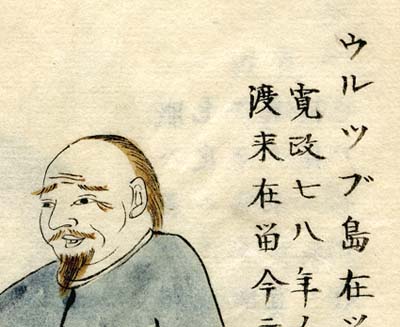 ウルツブ島在
寛政七八年
渡来在留今